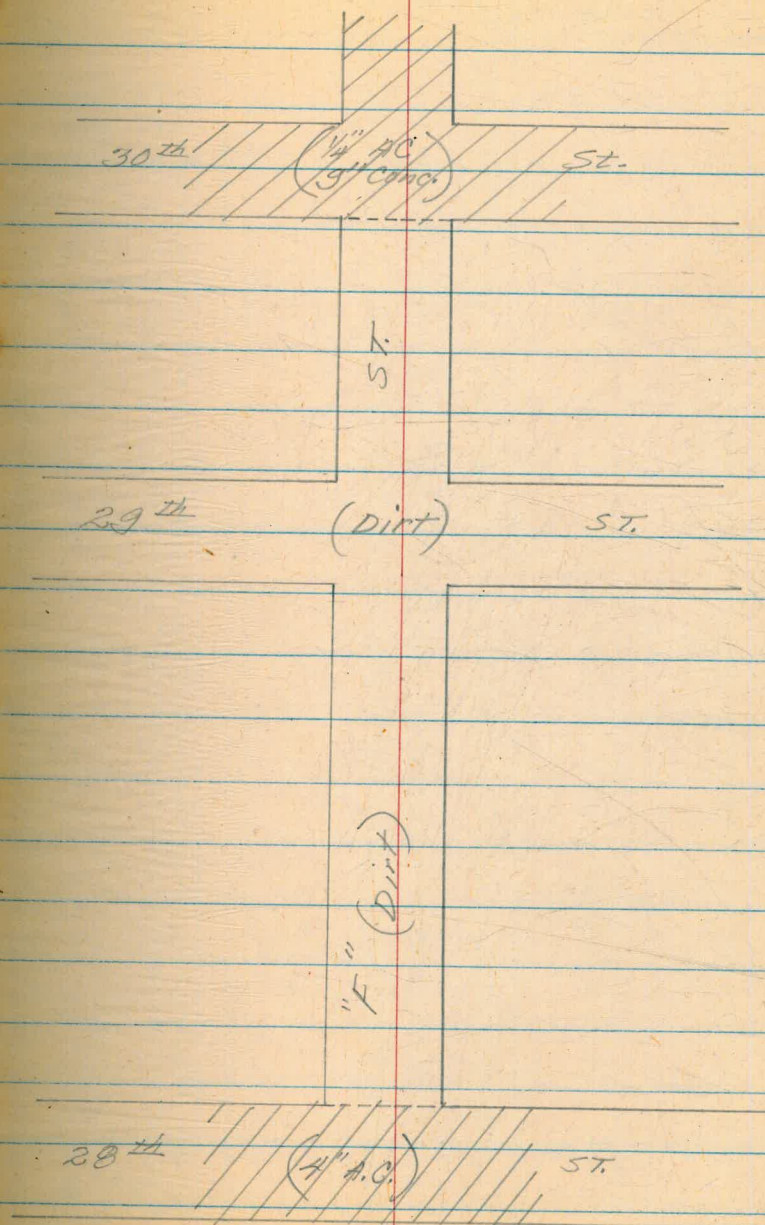 30th (1/4" AC St.
9" Conc.)
ST.
29th (Dirt) ST.
"F" (Dirt)
28th (4" A.C.) ST.